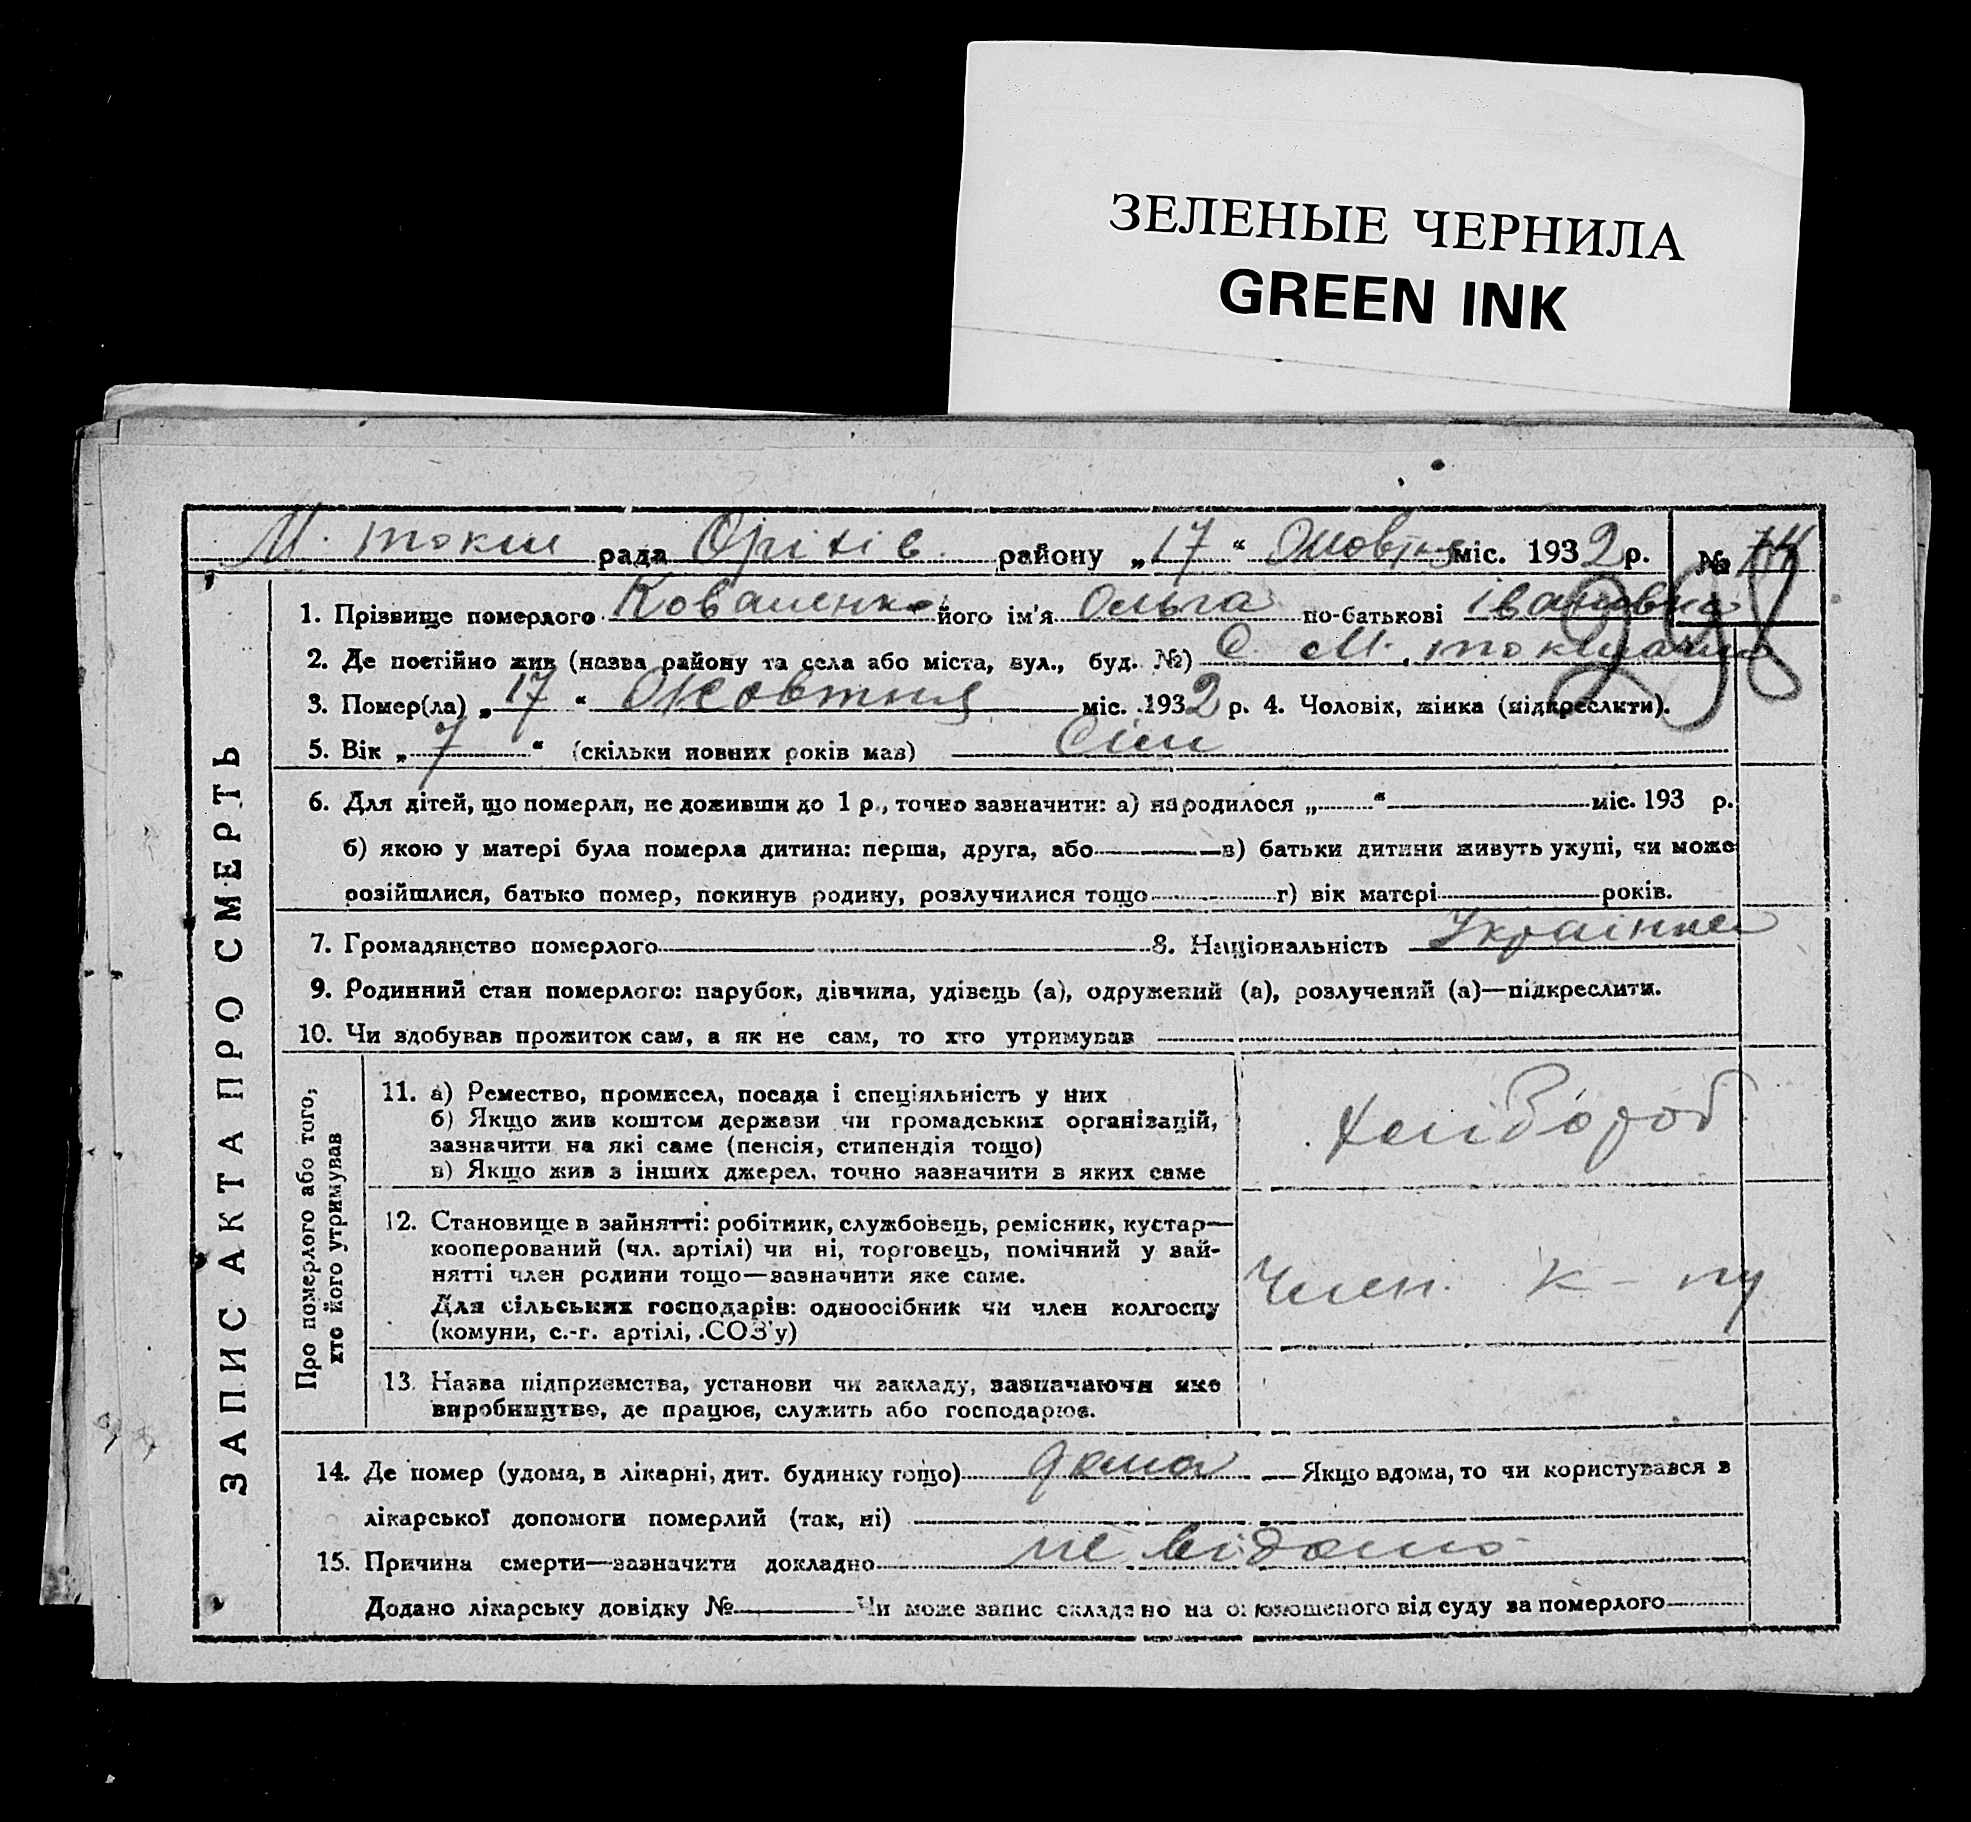 ЗЕЛЕНЫЕ ЧЕРНИЛА
GREEN INK
М. токм рада Оріхів району „17“ Жовтня міс. 1932 р. №
298
1. Прізвище померлого Коваленко його ім'я Ольга по-батькові Івановна
2. Де постійно жив (назва району та села або міста, вул., буд. №) С. М. токмачка
3. Помер(ла) „17“ Жовтня міс. 1932 р. 4. Чоловік, жінка (підкреслити).
5. Вік „7“ (скільки повних років мав) Сім
6. Для дітей, що померли, не доживши до 1 р., точно зазначити: а) народилося „ “ міс. 193 р.
б) якою у матері була померла дитина: перша, друга, або в) батьки дитини живуть укупі, чи може
розійшлися, батько помер, покинув родину, розлучилися тощо г) вік матері років.
7. Громадянство померлого 8. Національність Українка
9. Родинний стан померлого: парубок, дівчина, удівець (а), одружений (а), розлучений (а)—підкреслити.
10. Чи здобував прожиток сам, а як не сам, то хто утримував
ЗАПИС АКТА ПРО СМЕРТЬ
Про померлого або того,
хто його утримував
11. а) Ремество, промисел, посада і спеціяльність у них
б) Якщо жив коштом держави чи громадських організацій,
зазначити на які саме (пенсія, стипендія тощо)
в) Якщо жив з інших джерел, точно зазначити з яких саме
Хлібороб
12. Становище в зайнятті: робітник, службовець, ремісник, кустар—
кооперований (чл. артілі) чи ні, торговець, помічний у зай-
нятті член родини тощо—зазначити яке саме.
Для сільських господарів: одноосібник чи член колгоспу
(комуни, с.-г. артілі, СОЗ'у)
Член к-пу
13. Назва підприємства, установи чи закладу, зазначаючи яке
виробництво, де працює, служить або господарює.
14. Де помер (удома, в лікарні, дит. будинку тощо) дома Якщо вдома, то чи користувався з
лікарської допомоги померлий (так, ні)
15. Причина смерти—зазначити докладно не відомо
Додано лікарську довідку № Чи може запис складено на оголошеного від суду за померлого